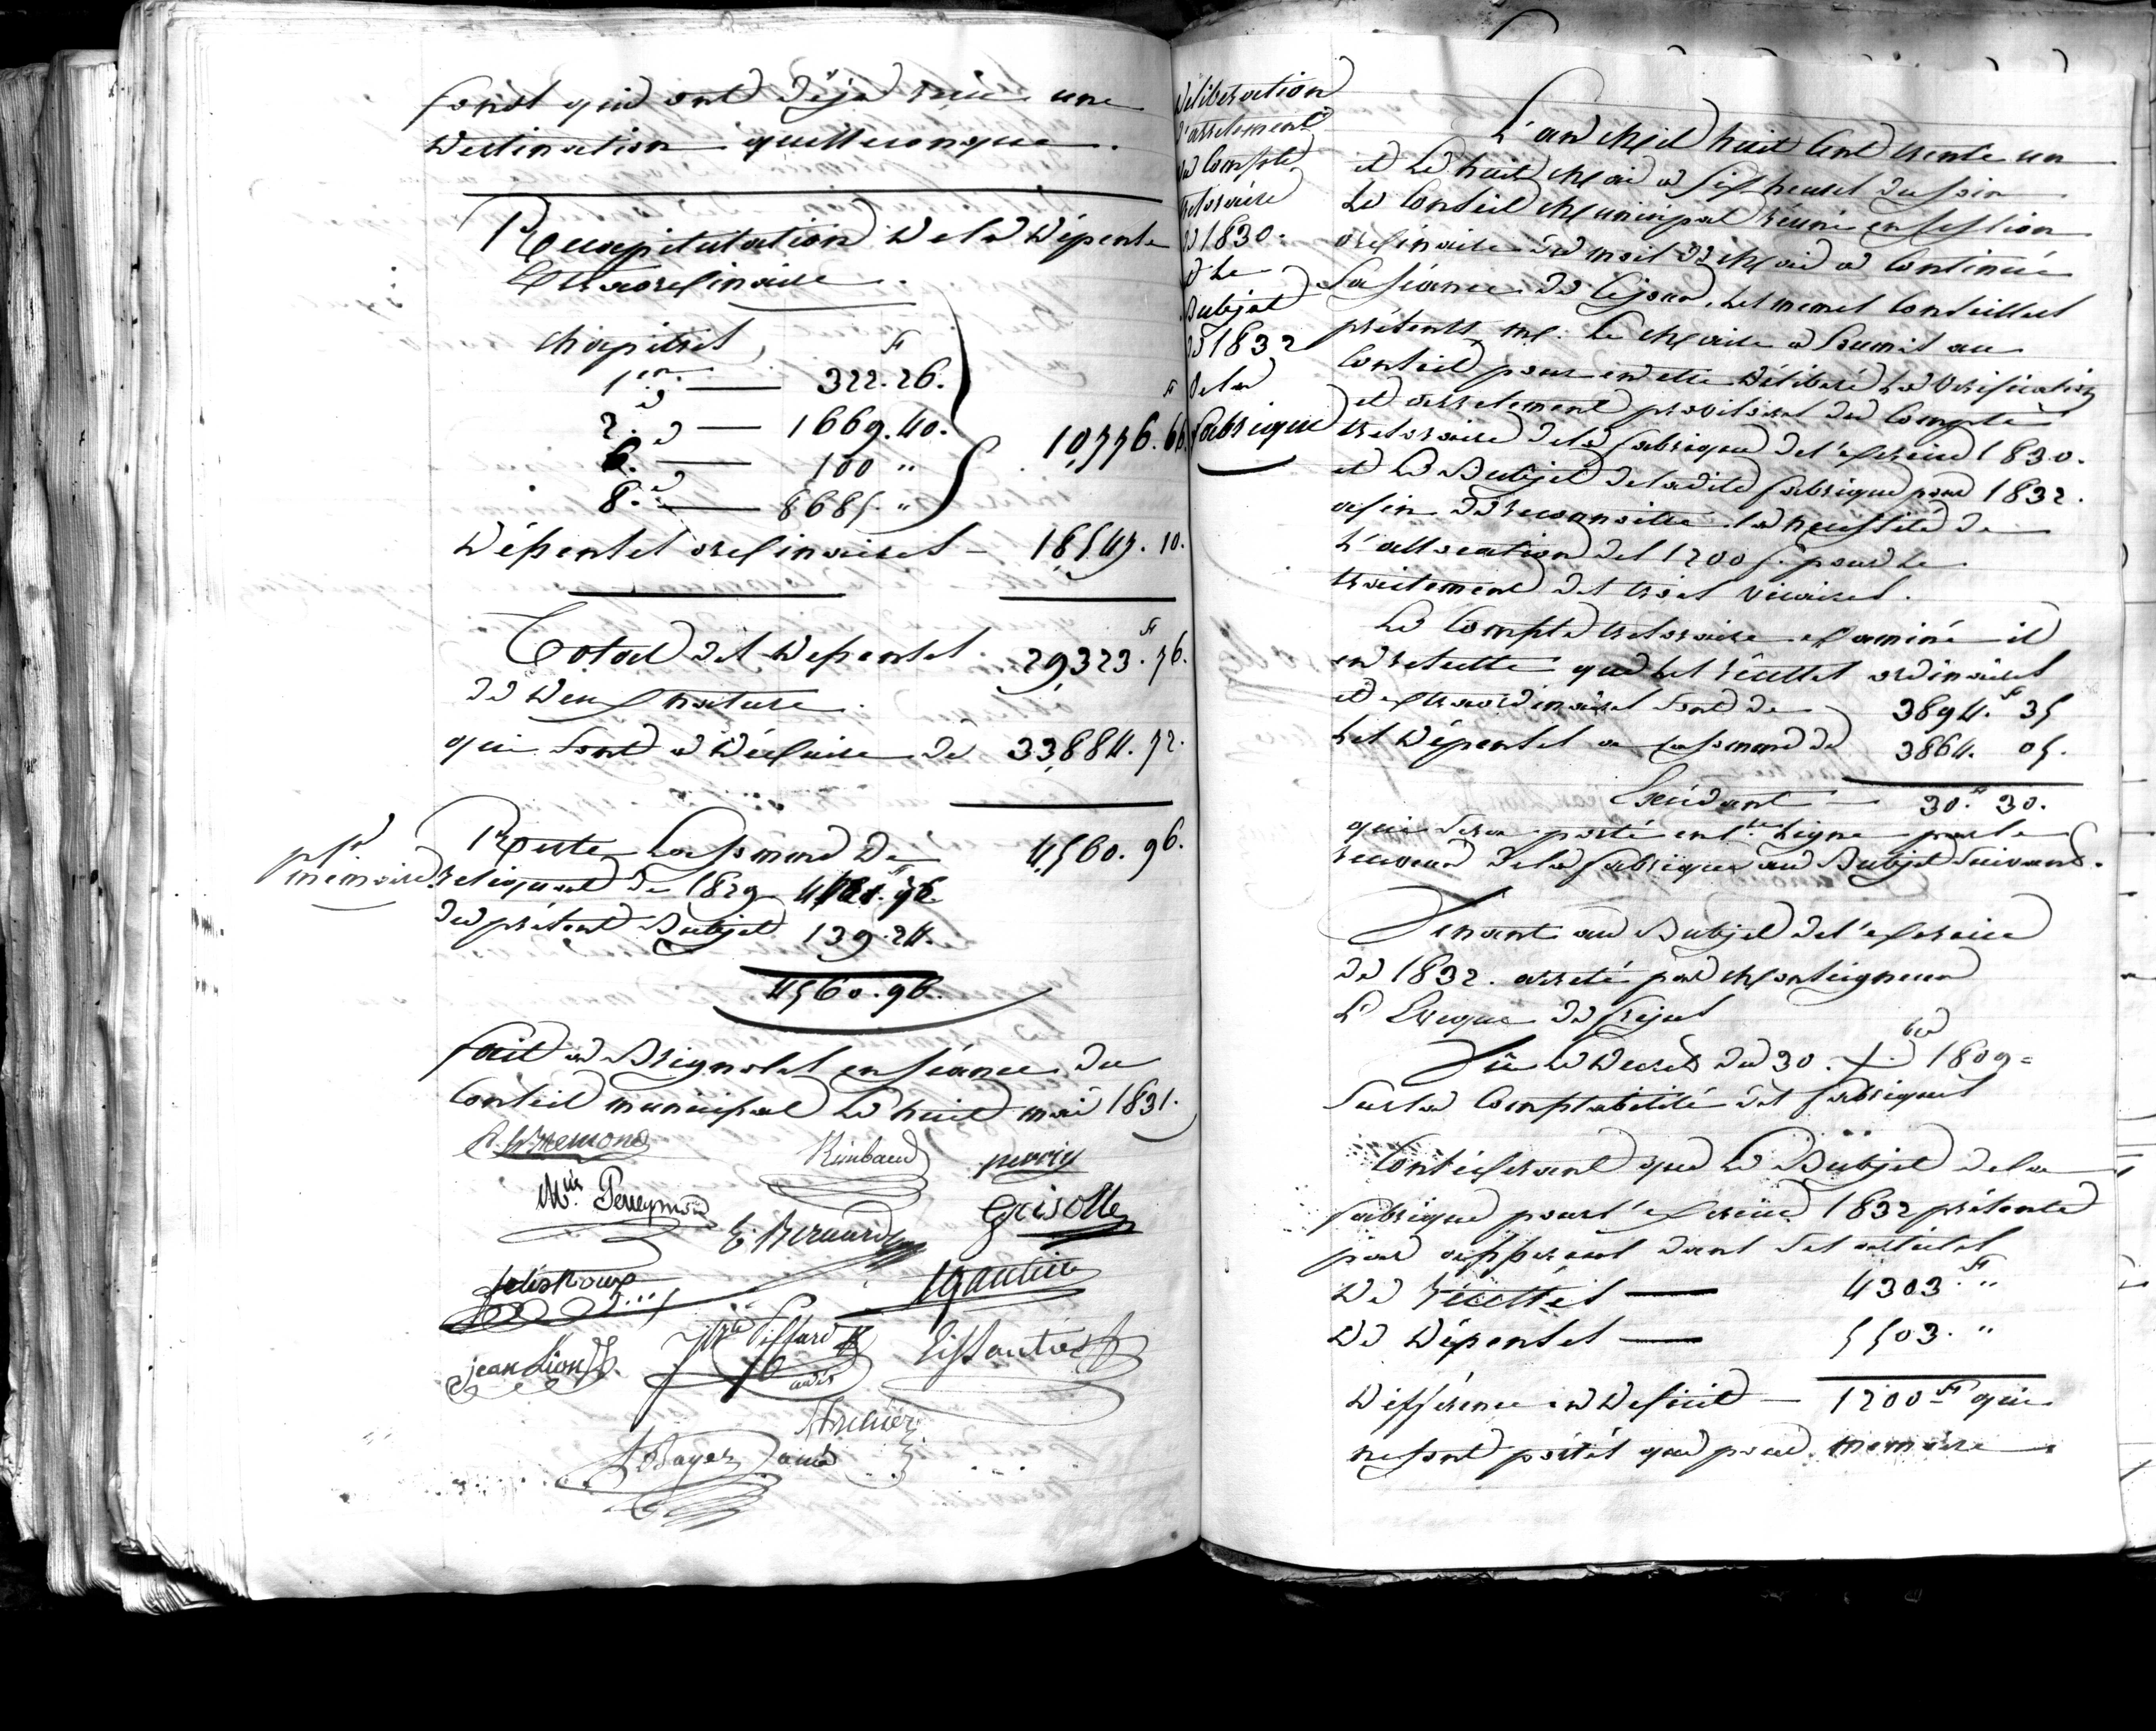 fonds qui ont déja reçu une
destination quelleconque.
Recapitulation de la dépense
Extraordinaire.
chapitres, F
1er. — 322.26.
2.e — 1669.40.
6. — 100 "
8.e — 8685. "
10,776.66.
Dépenses ordinaires — 18,547.10.
Total des depenses 29,323.F 76.
de deux nature.
qui sont à déduire de 33,884.72.
Reste La somme de 4,560.96.
pr mémoire
reliquat de 1829
du présent Budjet 139.24.
4560.96.
fait à Brignoles en séance du
Conseil municipal le huit mai 1831.
Rimbaud
Mius Pereymond
E. Bernard
Grisolle
jean Lion
Deliberation
d'arretement
du Compte
trésoraire
de 1830.
et Le
Budjet
de 1832
de la
fabrique
L'an Mil huit Cent trente un
et Le huit Mai à six heures du soir
Le Conseil Municipal réuni en session
ordinaire du mois de Mai a Continué
la séance de Cejour, les memes Conseillers
présents, mr. Le Maire a soumis au
Conseil pour en etre délibéré la verification
et arretement provisoire du Compte
tresoraire dela fabrique del'exercice 1830.
et Le Budjet deladite fabrique pour 1832.
afin de reconnoitre la necessité de
L'allocation des 1200 f. pour le
traitement des trois vicaires.
Le Compte tresoraire examiné il
en resulte que les récettes ordinaires
et extraordinaires sont de 3894.F 35
les dépenses a la somme de 3864. 05.
Excédant — 30.F 30.
qui sera porté en 1.re Ligne par le
receveur dela fabrique au Budjet suivant.
Venant au Budjet del'exercice
de 1832. arreté par Monseigneur
L'Eveque de frejus
Vû le Decret du 30. X.bre 1809 =
sur la Comptabilité des fabriques
Considerant que Le Budjet dela
fabrique pour l'exercice 1832 présente
par apperçus dans ses articles
de récettes — 4303.F "
de dépenses — 5503. "
différence en deficit — 1200 F qui
ne sont portés que pour memoire.